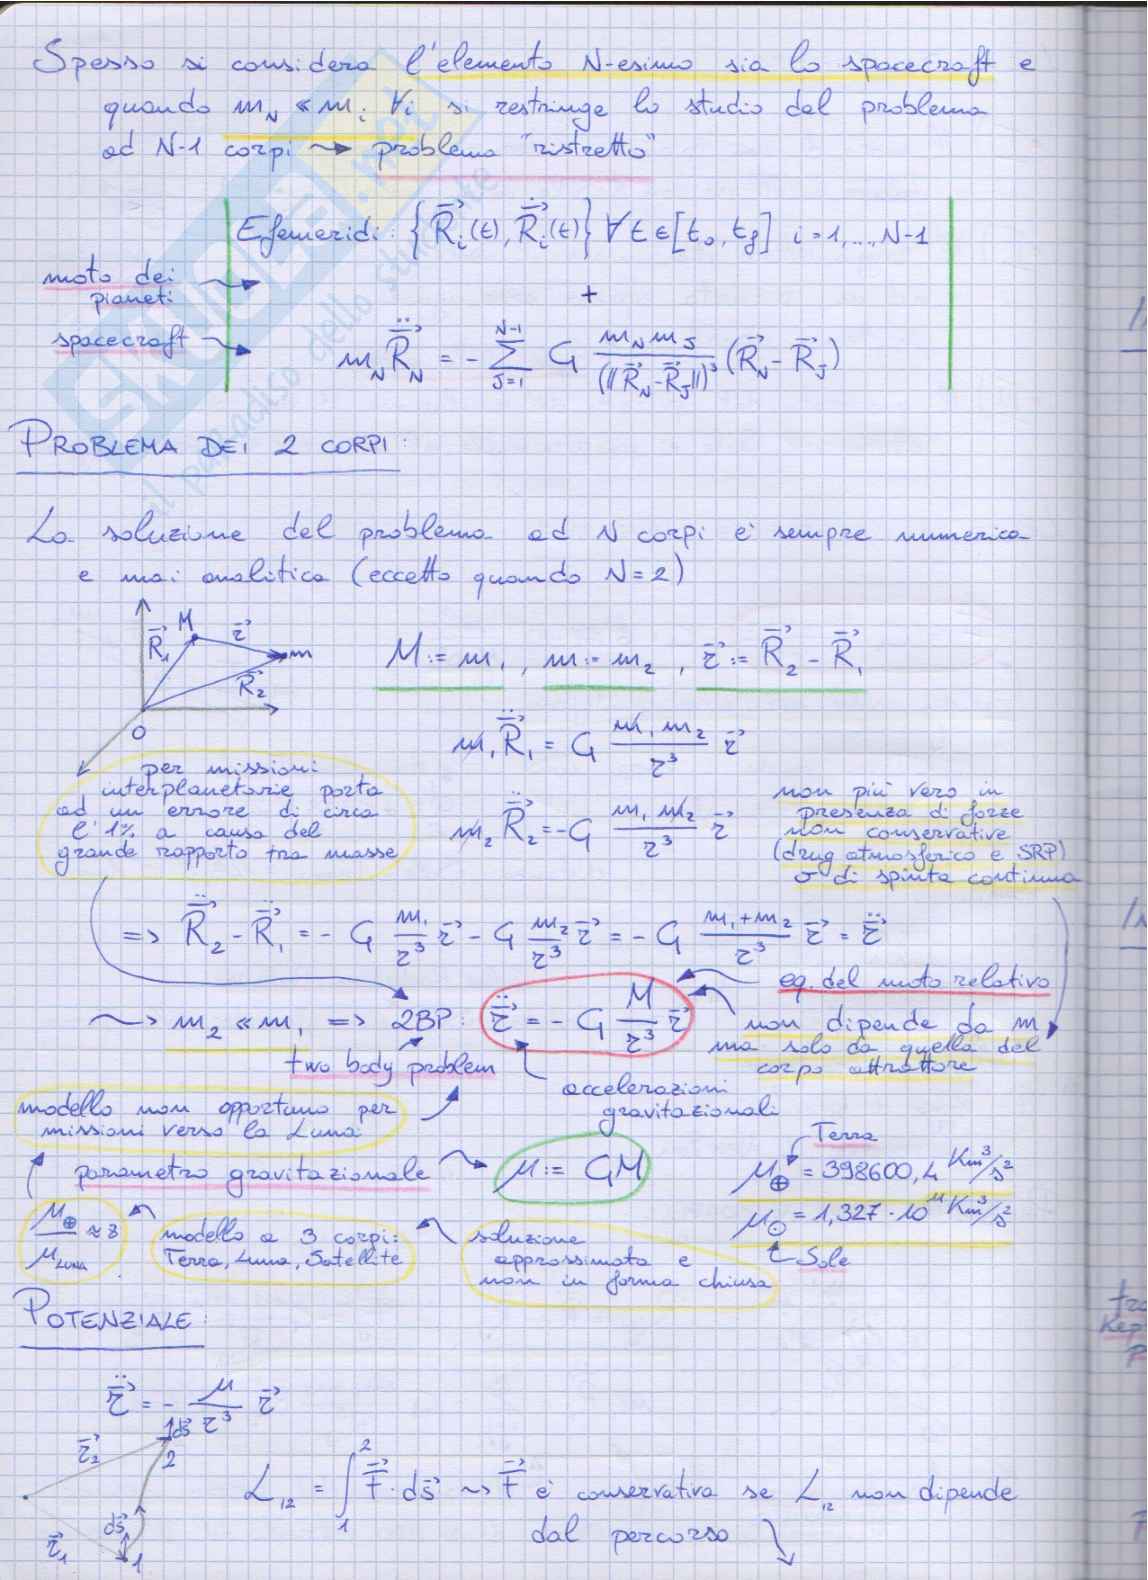 Spesso si considera l'elemento N-esimo sia lo spacecraft e
quando m_N ≪ m_i ∀i si restringe lo studio del problema
ad N-1 corpi → problema "ristretto"
Efemeridi: {R̄_i(t), R̄̇_i(t)} ∀t∈[t_0, t_f] i=1,...,N-1
moto dei
pianeti
+
spacecraft → m_N R̄̈_N = - Σ_{J=1}^{N-1} G m_N m_J / (‖R̄_N - R̄_J‖)^3 (R̄_N - R̄_J)
PROBLEMA DEI 2 CORPI:
La soluzione del problema ad N corpi è sempre numerica
e mai analitica (eccetto quando N=2)
M R̄_1 r̄ m R̄_2 O
M:= m_1, m:= m_2, r̄:= R̄_2 - R̄_1
m_1 R̄̈_1 = G m_1 m_2 / r^3 r̄
per missioni
interplanetarie porta
ad un errore di circa
l'1% a causa del
grande rapporto tra masse
m_2 R̄̈_2 = -G m_1 m_2 / r^3 r̄
non più vero in
presenza di forze
non conservative
(drag atmosferico e SRP)
o di spinta continua
=> R̄̈_2 - R̄̈_1 = - G m_1/r^3 r̄ - G m_2/r^3 r̄ = - G (m_1+m_2)/r^3 r̄ = r̄̈
eq. del moto relativo
→ m_2 ≪ m_1 => 2BP: r̄̈ = - G M/r^3 r̄
non dipende da m
ma solo da quella del
corpo attrattore
two body problem
accelerazioni
gravitazionali
modello non opportuno per
missioni verso la Luna
parametro gravitazionale → μ:= GM
Terra
μ_⊕ = 398600,4 Km^3/s^2
μ_⊙ = 1,327·10^11 Km^3/s^2
Sole
μ_⊕/μ_LUNA ≈ 8
modello a 3 corpi:
Terra, Luna, Satellite
soluzione
approssimata e
non in forma chiusa
POTENZIALE:
r̄̈ = - μ/r^3 r̄
r̄_2 ds̄ 2
ds̄ r̄_1 1
L_12 = ∫_1^2 F̄ · ds̄ → F̄ è conservativa se L_12 non dipende
dal percorso
SKUOLA.net
il paradiso dello studente